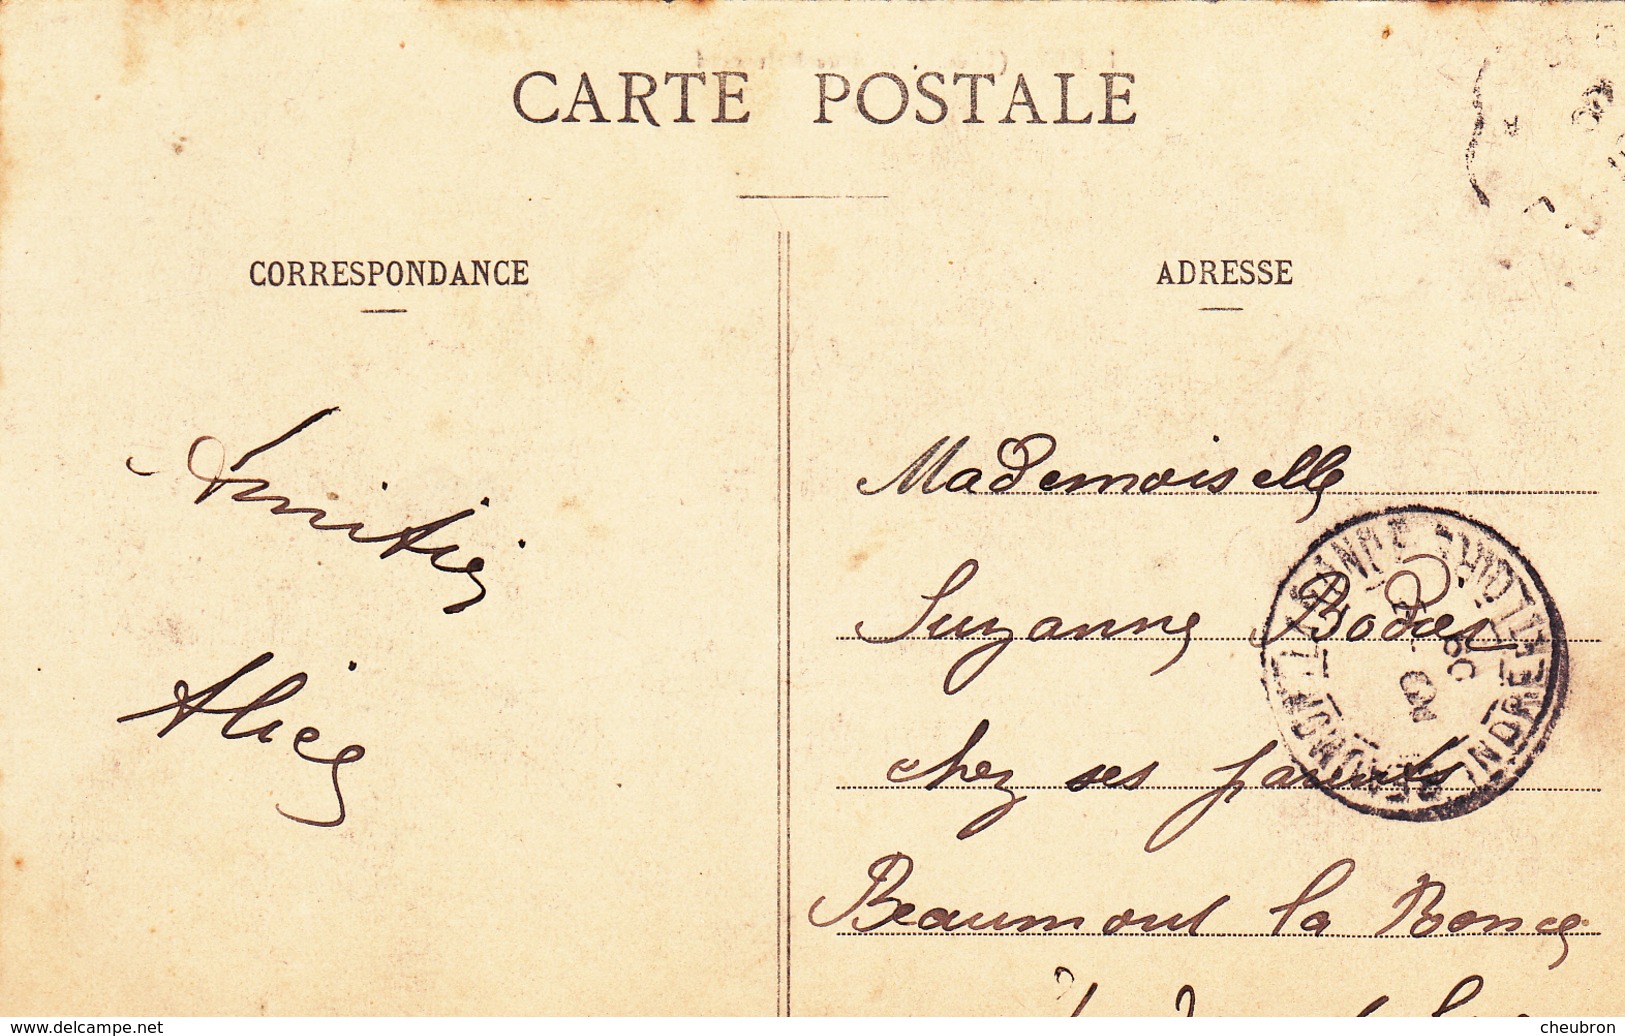 CARTE POSTALE
CORRESPONDANCE
ADRESSE
Amitiés
Alice
Mademoiselle
Suzanne
chez ses parents
Beaumont la Ronce
www.delcampe.net
cheubron